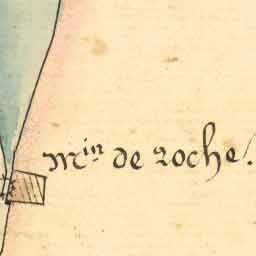 Min de roche.